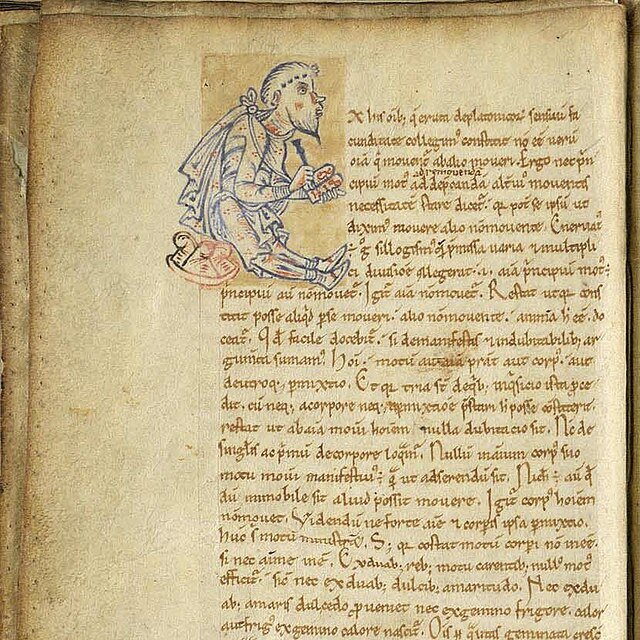 X his oib; q eruta deplatonicoꝝ sensuū fe
cunditate collegim᷒ constitit nō eē uerū
oīa q mouent᷑ abalio moueri. Ergo nec prin
cipiū mot᷒ ad depcanda alteri᷒ mouentis
remouenda
necessitatē stare dicet᷑. q̄ pot se ipsū ut
dixim᷒ mouere alio nōmouente. Eneruat᷒
ē g̊ sillogism᷒ q̄ p̄missa uaria ⁊ multipli
ci diuisiōe allegerat .i. aīa p̄ncipiū mot᷒ ē.
p̄ncipiū aū nōmouet᷑. Igit᷑ aīa nōmouet᷑. Restat ut q̄ cons
titit posse aliqd p̄se moueri. alio nōmouente. animā h eē. do
ceat᷑. Qd facile docebit᷑. si demanifestis ⁊ indubitabilib; ar
gumta sumam᷒. Hoi. motū aut aīa p̄stat aut corp᷒. aut
deutroq; p̄mixtio. Et q̄ tria st̄ deqb; inq̄sicio ista p̄ce
dit. cū neq; acorpore neq; ap̄mixtiōe p̄stari h posse cōstiterit.
restat ut abaīa moūi hoiem nulla dubitacio sit. Nc de
singlis ac p̄mū decorpore loqm᷒. Nullū inanimū corp᷒ suo
motu moūi manifesti᷒ ē q̄ ut adserendū sit. Nich ē aū qd
dū immobile sit aliud possit mouere. Igit᷑ corp᷒ hoiem
nōmouet. Videndū ne forte aīe ⁊ corp̄is ipsa p̄mixtio.
huc s motū ministret. S; q̄ cōstat motū corpi nō inee.
si nec aīme inē. Exduab; reb; motu carentib; null᷒ mot᷒
efficit᷑. sic nec exduab; dulcib; amaritudo. Nec exdu
ab; amaris dulcedo p̄ueniet nec exgemino frigore calor
aut frig᷒ exgemino calore nascit᷑. Oīs n̄ q̄litas geminata cresc